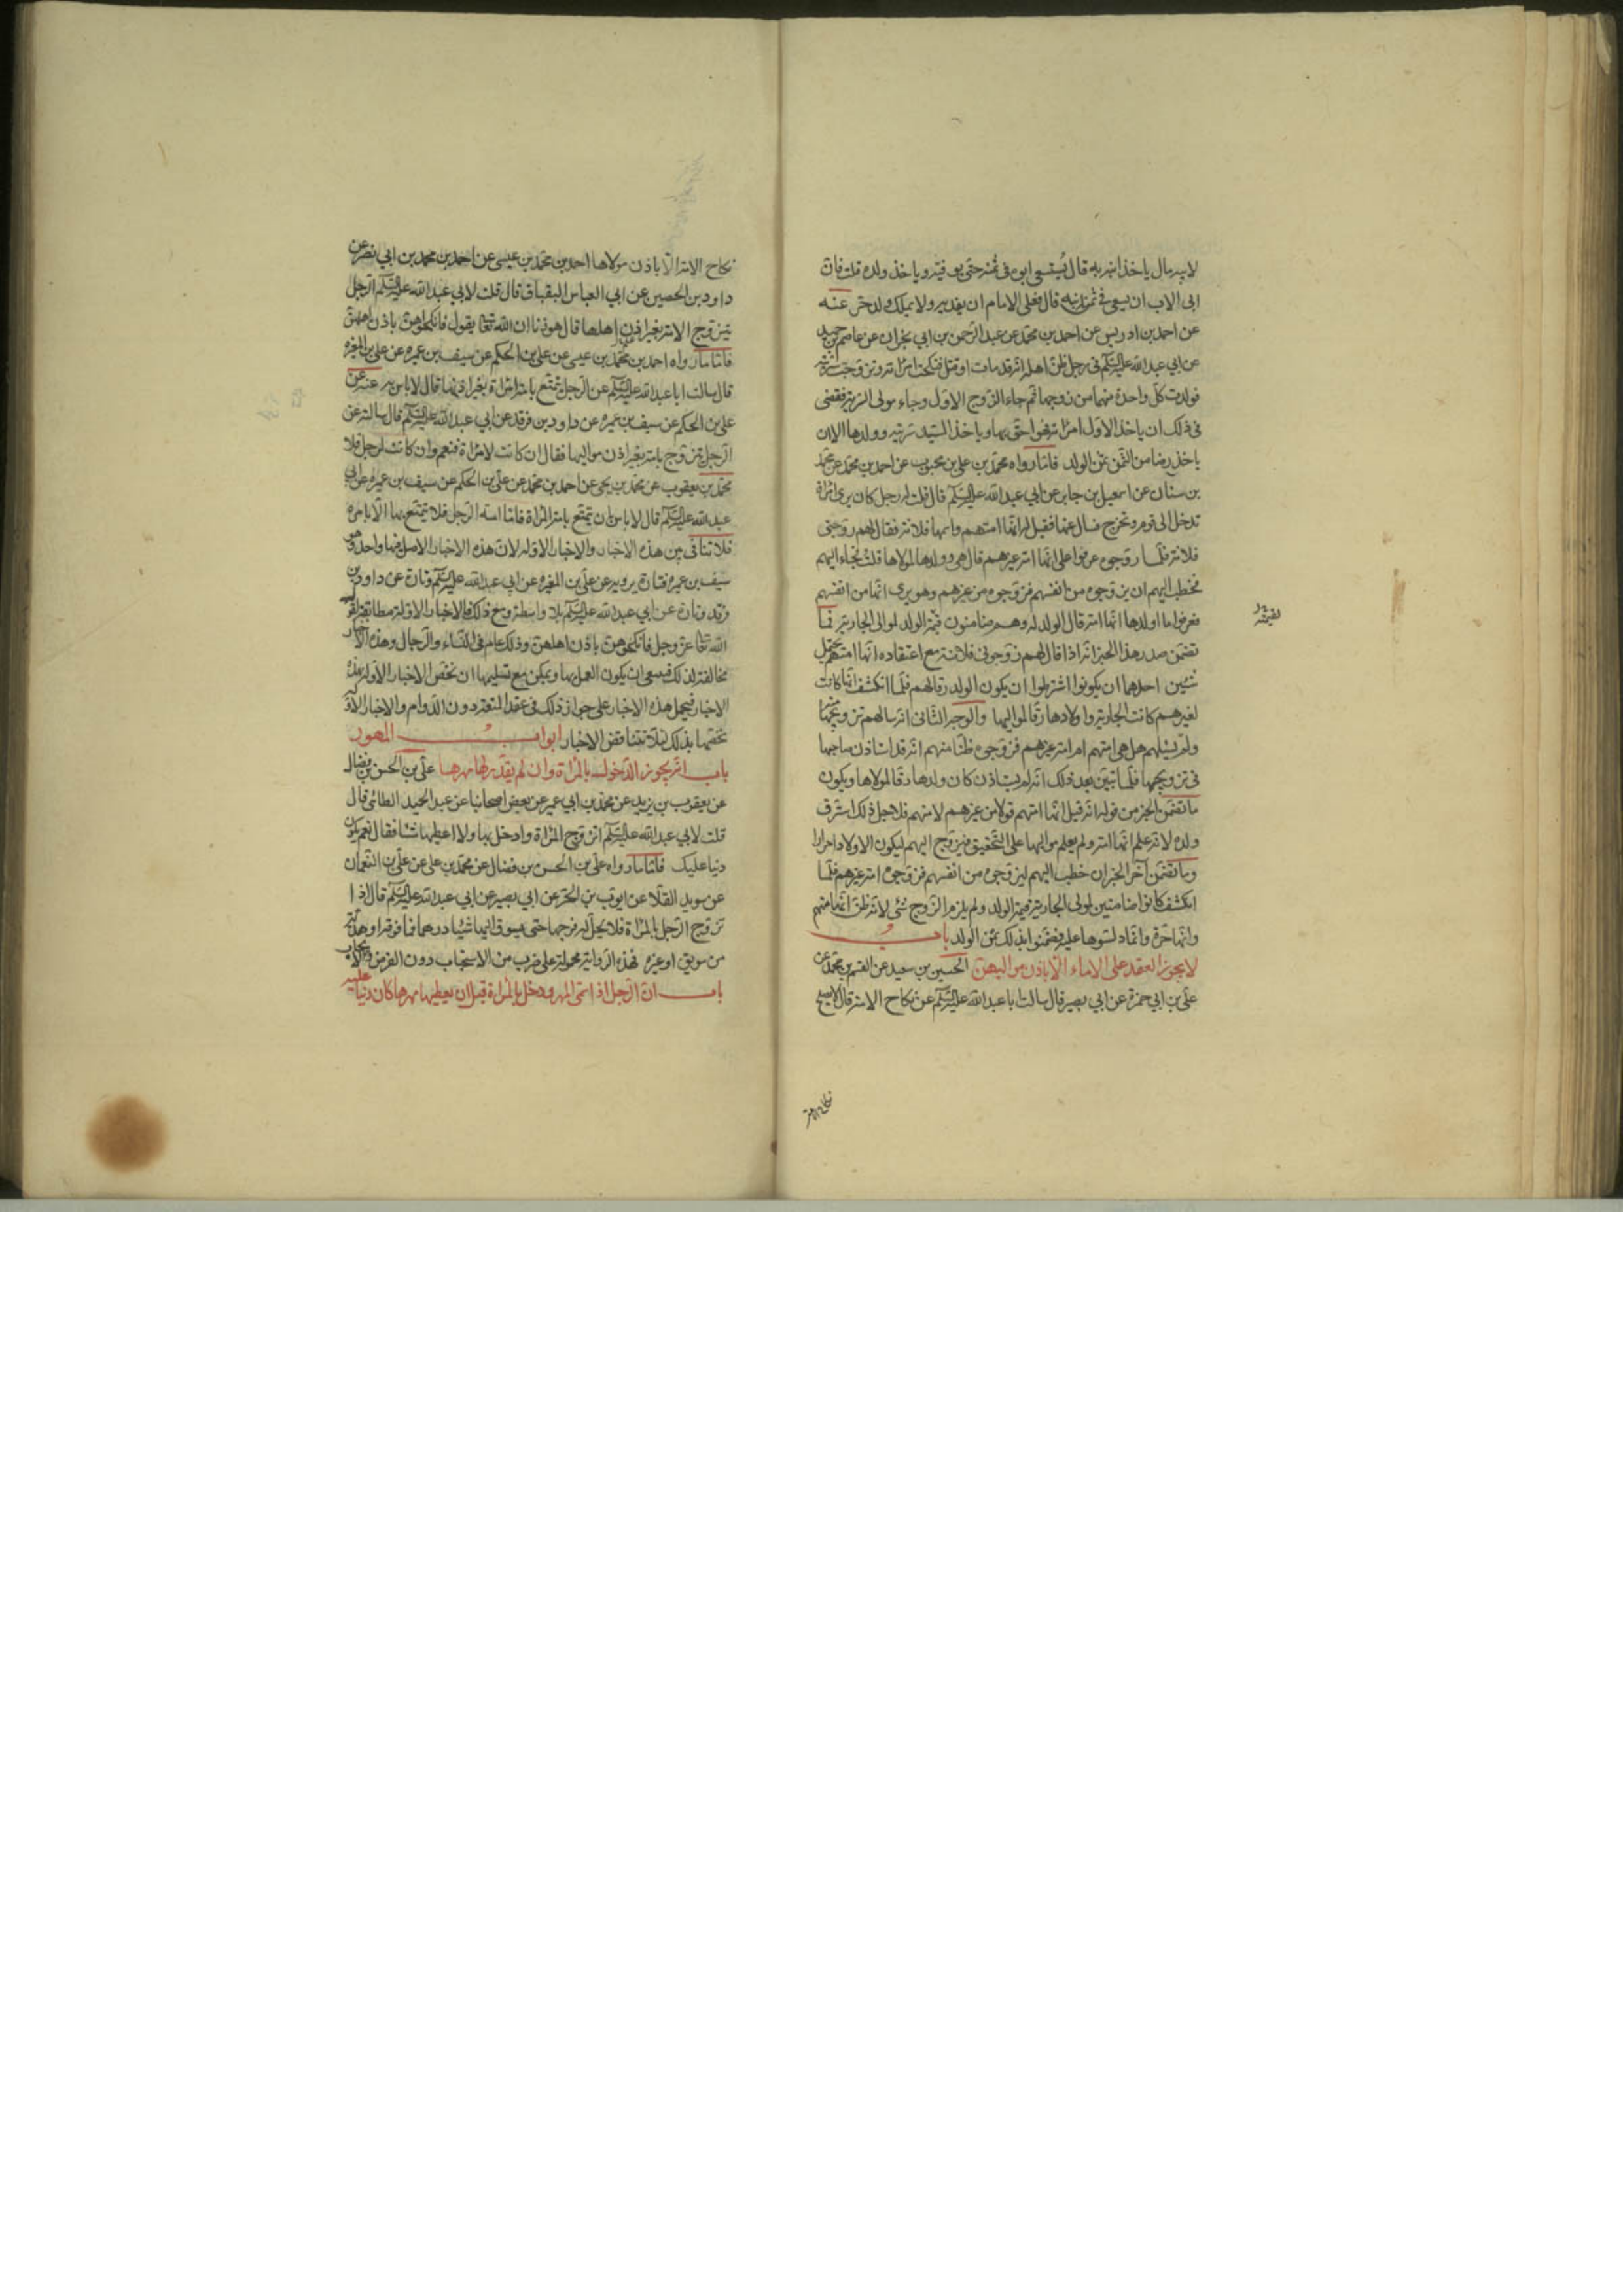 لا يدرمال ياخذ ابنه به قال يستسعى ابوه فى ثمنه حتى يوفيه و ياخذ ولده قلت فان
ابى الاب ان يسعى فى ثمن ابنه قال فعلى الامام ان يفديه ولا يملك ولد حر عنه
عن احمد بن ادريس عن احمد بن محمد عن عبد الرحمن بن ابي نجران عن عاصم بن حميد
عن ابي عبد الله عليه السلم فى رجل ظن اهله انه قد مات او قتل فنكحت امراته و تزوجت سريته
فولدت كل واحدة منهما من زوجها ثم جاء الزوج الاول وجاء مولى السرية فقضى
فى ذلك ان ياخذ الاول امراته فهو احق بها و ياخذ السيد سريته و ولدها الا ان
ياخذ رضا من الثمن ثمن الولد فاما رواه محمد بن علي بن محبوب عن احمد بن محمد عن محمد
بن سنان عن اسمعيل بن جابر عن ابي عبد الله عليه السلم قال قلت له رجل كان يرى امراة
تدخل الى قوم و تخرج فسال عنها فقيل له انها امتهم و اسمها فلانة فقال لهم زوجنى
فلانة فلما زوجوه عرفوا على انها امة غيرهم قال هى و ولدها لمولاها قلت فجاء اليهم
فخطب اليهم ان يزوجوه من انفسهم فزوجوه من غيرهم وهو يرى انها من انفسهم
فعرفوا ما اولدها انها امة قال الولد له وهم ضامنون قيمة الولد لموالى الجارية فما
تضمن صدر هذا الخبر انه اذا قال لهم زوجونى فلانة مع اعتقاده انها امتهم يحتمل
شيئين احدهما ان يكونوا اشترطوا ان يكون الولد رقا لهم فلما انكشف انها كانت
لغيرهم كانت الجارية و اولادها رقا لمواليها والوجه الثانى انه سالهم تزويجها
ولم يسئلهم هل هى امتهم ام امة غيرهم فزوجوه ظنا منهم انه قد استاذن صاحبها
فى تزويجها فلما تبين بعد ذلك انه لم يستاذن كان ولدها رقا لمولاها و يكون
ما تضمن الخبر من قوله انه قيل انها امتهم قولا من غيرهم لا منهم فلاجل ذلك استرق
ولده لانه علم انها امة ولم يعلم مواليها على التحقيق فيزوج اليهم ليكون الاولاد احرارا
وما تضمن آخر الخبر ان خطب اليهم ليزوجوه من انفسهم فزوجوه امة غيرهم فلما
انكشف كانوا ضامنين لمولى الجارية قيمة الولد ولم يلزم الزوج شئ لانه ظن انها منهم
وانها حرة وانما دلسوها عليه فضمنوا بذلك ثمن الولد باب
لا يجوز العقد على الاماء الا باذن مواليهن الحسين بن سعيد عن القسم بن محمد عن
علي بن ابي حمزة عن ابي بصير قال سالت ابا عبد الله عليه السلم عن نكاح الامة قال لا يصلح
نكاح الامة
نكاح الامة الا باذن مولاها احمد بن محمد بن عيسى عن احمد بن محمد بن ابي نصر عن
داود بن الحصين عن ابي العباس البقباق قال قلت لابي عبد الله عليه السلم الرجل
يتزوج الامة بغير اذن اهلها قال هو زنا ان الله تعا يقول فانكحوهن باذن اهلهن
فاما ما رواه احمد بن محمد بن عيسى عن علي بن الحكم عن سيف بن عميره عن علي بن المغيره
قال سالت ابا عبد الله عليه السلم عن الرجل يتمتع بامة امراة بغير اذنها قال لا باس به عنه عن
علي بن الحكم عن سيف بن عميره عن داود بن فرقد عن ابي عبد الله عليه السلم قال سالته عن
الرجل يتزوج بامة بغير اذن مواليها فقال ان كانت لامراة فنعم وان كانت لرجل فلا
محمد بن يعقوب عن محمد بن يحيى عن احمد بن محمد عن علي بن الحكم عن سيف بن عميره عن ابي
عبد الله عليه السلم قال لا باس ان يتمتع بامة المراة فاما امة الرجل فلا يتمتع بها الا بامره
فلا تنافى بين هذه الاخبار والاخبار الاوله لان هذه الاخبار الاصل فيها واحد وهو
سيف بن عميره فتارة يرويه عن علي بن المغيره عن ابي عبد الله عليه السلم وتارة عن داود بن
فرقد وتارة عن ابي عبد الله عليه السلم بلا واسطة ومع ذلك فالاخبار الاولة مطابقة لقول
الله تعا عز وجل فانكحوهن باذن اهلهن وذلك عام فى النساء والرجال وهذه الاخبار
مخالفة لذلك فينبغى ان يكون العمل بها ويمكن مع تسليمها ان نخص الاخبار الاولة بهذه
الاخبار فيحمل هذه الاخبار على جواز ذلك فى عقد المتعة دون الدوام والاخبار الاولة
نخصها بذلك لئلا تتناقض الاخبار ابواب المهور
باب انه يجوز الدخول بالمراة وان لم يقدم لها مهرها علي بن الحسن بن فضال
عن يعقوب بن يزيد عن محمد بن ابي عمير عن بعض اصحابنا عن عبد الحميد الطائى قال
قلت لابي عبد الله عليه السلم اتزوج المراة وادخل بها ولا اعطيها شئا فقال نعم يكون
دينا عليك فاما ما رواه علي بن الحسن بن فضال عن محمد بن علي عن علي بن النعمان
عن سويد القلا عن ايوب بن الحر عن ابي بصير عن ابي عبد الله عليه السلم قال اذا
تزوج الرجل بالمراة فلا يحل له فرجها حتى يسوق اليها شيئا درهما فما فوقه او هدية
من سويق او غيره فهذه الرواية محمولة على ضرب من الاستحباب دون الفرض والايجاب
باب ان الرجل اذا سمى المهر ودخل بالمراة قبل ان يعطيها مهرها كان دينا عليه